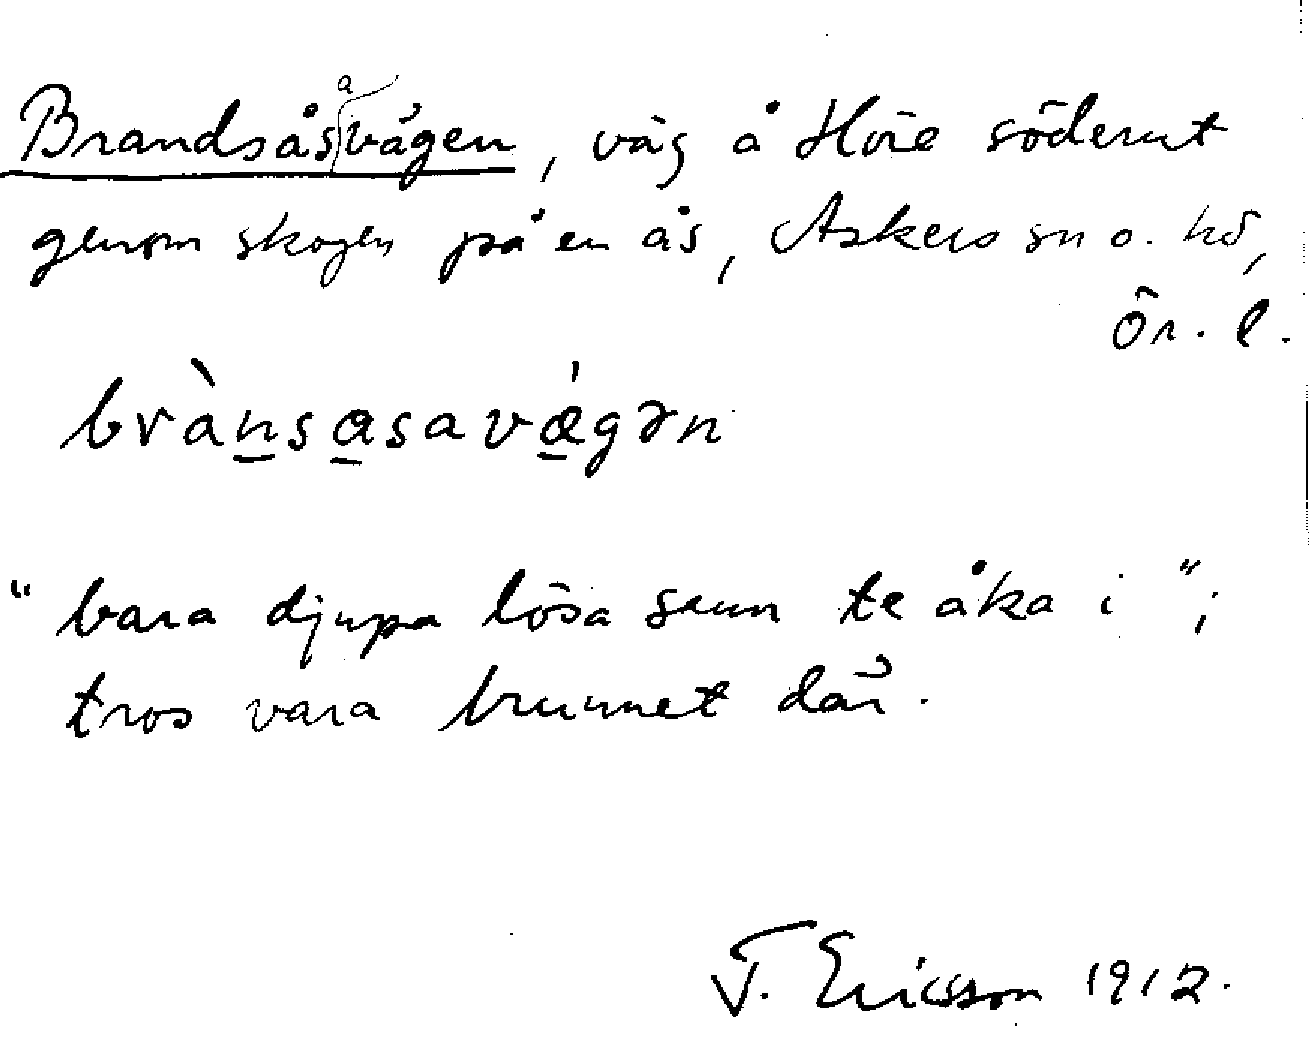 Brandsåsavägen, väg å Höie söderut
genom skogen på en ås, Askers sn o. hd,
Ör. l.
brànsasavǽgən
"bara djupa lösa senn te åka i";
tros vara brunnet där.
T. Ericsson 1912.